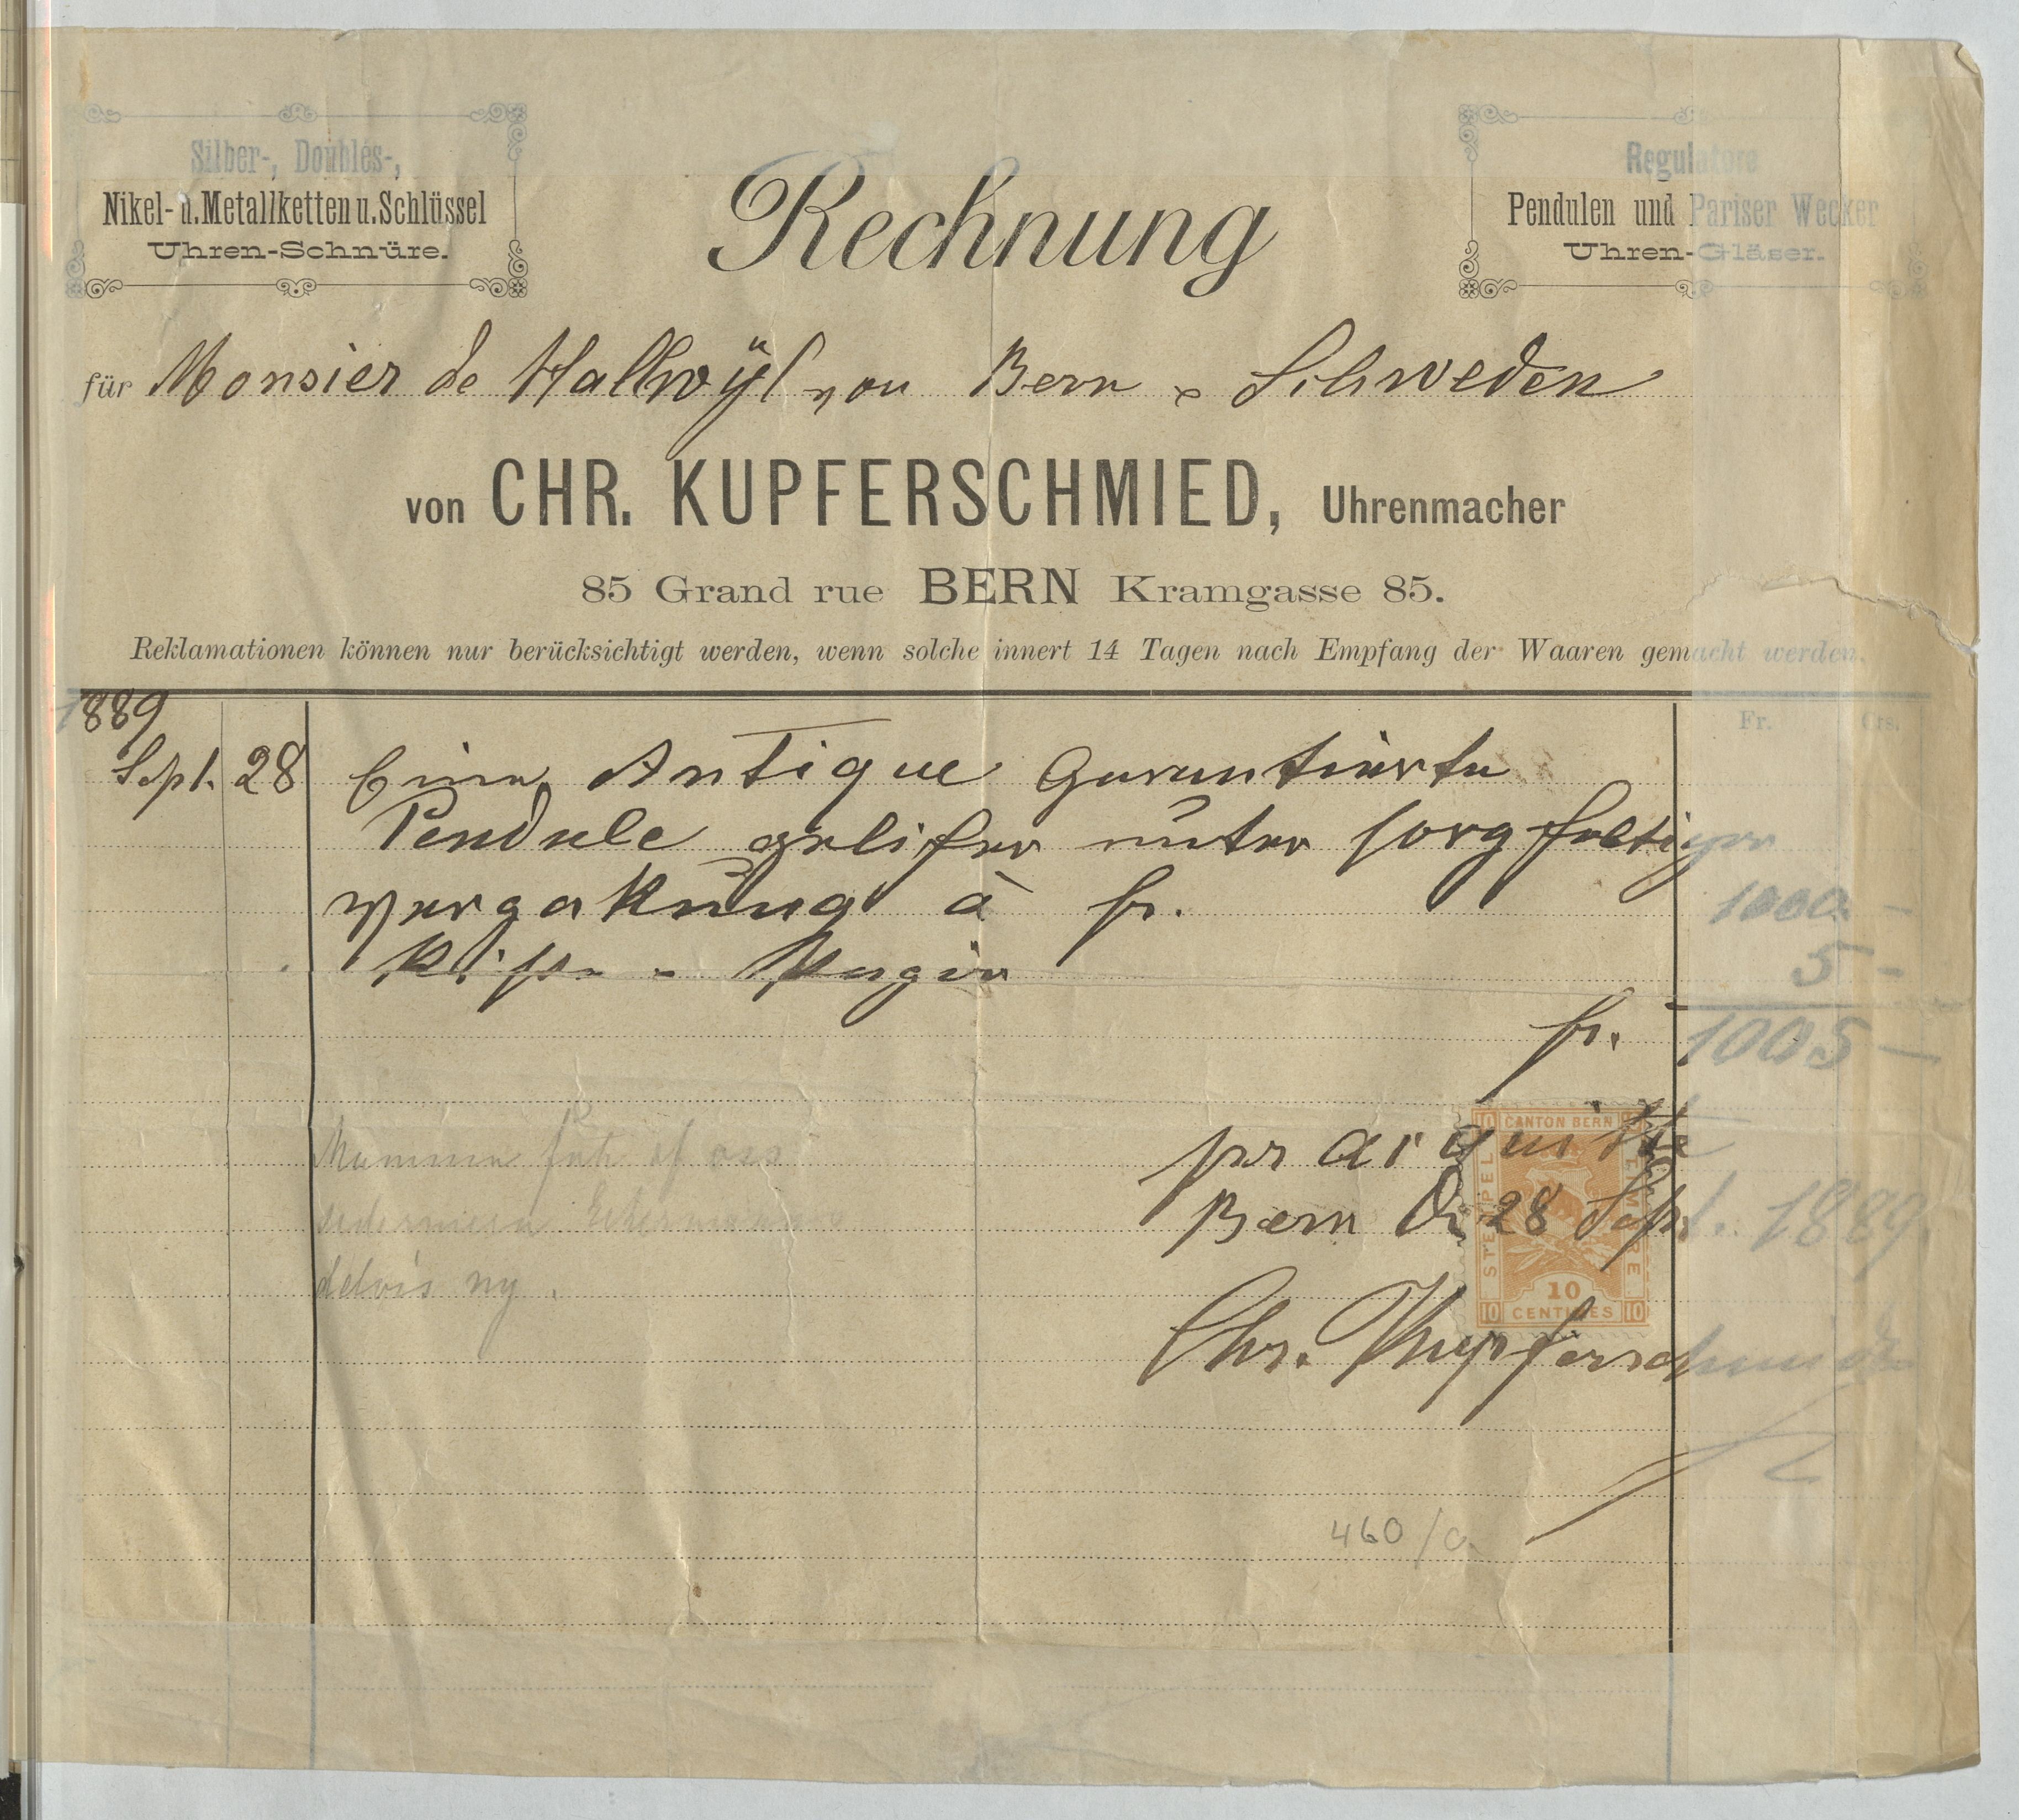 Silber-, Doublés-,
Nikel- u. Metallketten u. Schlüssel
Uhren-Schnüre.
Rechnung
Regulatore
Pendulen und Pariser Wecker
Uhren-Gläser.
für Monsier de Hallwÿl von Bern & Schweden
von CHR. KUPFERSCHMIED, Uhrenmacher
85 Grand rue BERN Kramgasse 85.
Reklamationen können nur berücksichtigt werden, wenn solche innert 14 Tagen nach Empfang der Waaren gemacht werden.
Fr. Cts.
1889
Sept. 28 Eine Antique Garantierte
Pendule gelifer unter sorgfeltiger
vergakung à fr. 1000 –
5 –
fr. 1005 –
per acquitte
Bern D. 28 Sept. 1889.
Chr. Kupferschmied
CANTON BERN
STEMPEL
TIMBRE
10
CENTIMES
10 10 10 10
delvis ny.
460/a.